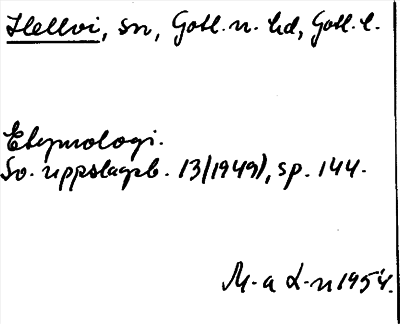 Hellvi, sn, Gotl. n. hd, Gotl. l.
Etymologi.
Sv. uppslagsb. 13(1949), sp. 144.
M-a L-n 1954.